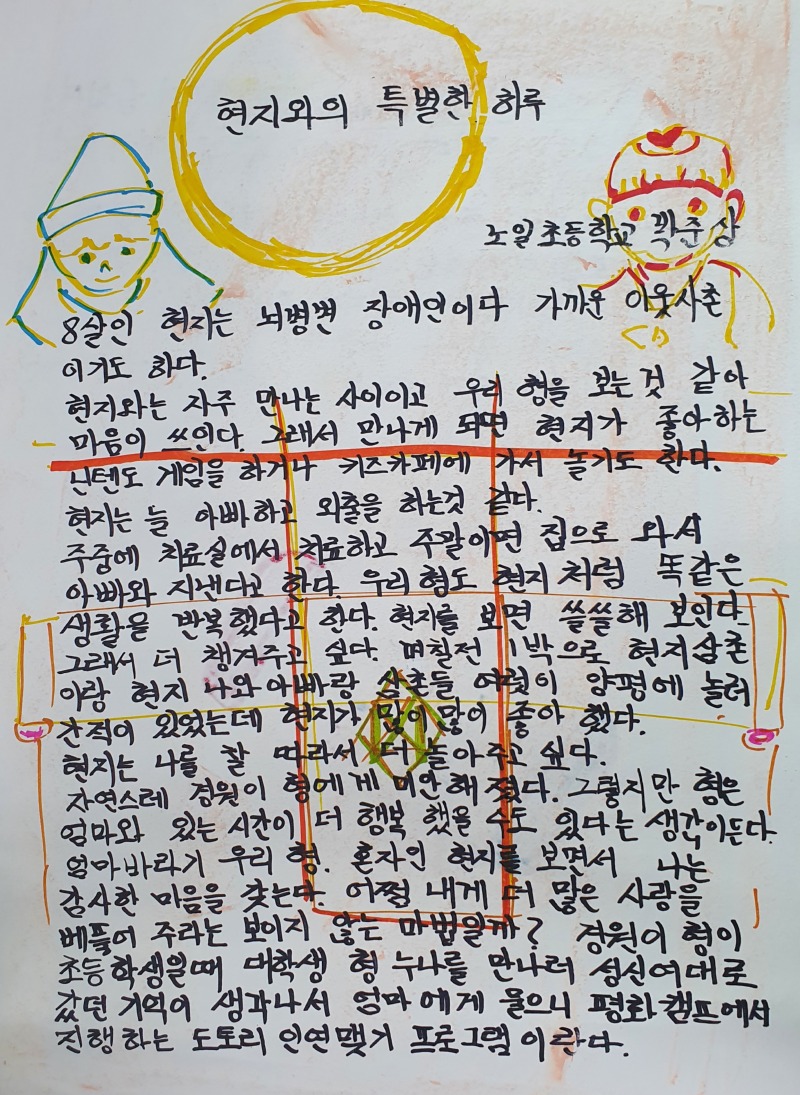 현지와의 특별한 하루
노일초등학교 곽준상
8살인 현지는 뇌병변 장애인이다 가까운 이웃사촌
이기도 하다.
현지와는 자주 만나는 사이이고 우리 형을 보는것 같아
마음이 쓰인다. 그래서 만나게 되면 현지가 좋아하는
닌텐도 게임을 하거나 키즈카페에 가서 놀기도 한다.
현지는 늘 아빠하고 외출을 하는것 같다.
주중에 치료실에서 치료하고 주말이면 집으로 와서
아빠와 지낸다고 한다. 우리형도 현지처럼 똑같은
생활을 반복했다고 한다. 현지를 보면 쓸쓸해 보인다.
그래서 더 챙겨주고 싶다. 며칠전 1박으로 현지삼촌
이랑 현지 나와아빠랑 삼촌들 여럿이 양평에 놀러
간적이 있었는데 현지가 많이많이 좋아 했다.
현지는 나를 잘 따라서 더 놀아주고 싶다.
자연스레 경원이 형에게 미안해 졌다. 그렇지만 형은
엄마와 있는 시간이 더 행복 했을 수도 있다는 생각이든다.
엄마바라기 우리 형. 혼자인 현지를 보면서 나는
감사한 마음을 갖는다. 어쩜 내게 더 많은 사랑을
베풀어 주라는 보이지 않는 마법일까? 경원이 형이
초등학생일때 대학생 형 누나를 만나러 성신여대로
갔던 기억이 생각나서 엄마에게 물으니 평화캠프에서
진행하는 도토리 인연맺기 프로그램이란다.